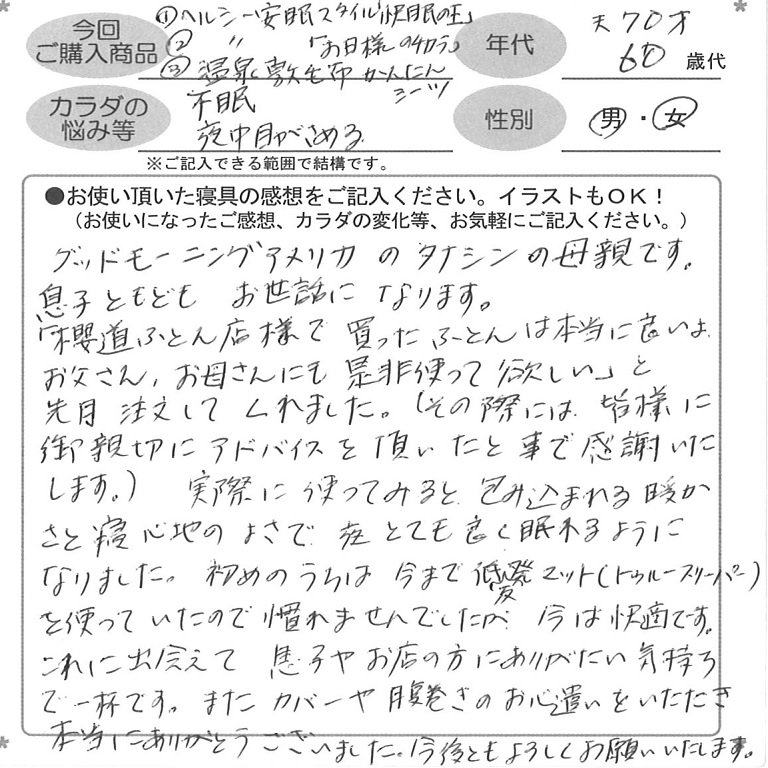 今回
ご購入商品
①ヘルシー安眠スタイル「快眠の王」
② 〃 「お日様の物語」
③温泉敷毛布 かんたん
シーツ
年代
夫70才
60歳代
カラダの
悩み等
不眠
夜中目がさめる
性別
男・女
※ご記入できる範囲で結構です。
●お使い頂いた寝具の感想をご記入ください。イラストもOK！
（お使いになったご感想、カラダの変化等、お気軽にご記入ください。）
グッドモーニングアメリカ の タナシン の母親です。
息子ともども お世話に なります。
「櫻道ふとん店様で 買ったふとんは本当に良いよ
お父さん、お母さんにも 是非使って 欲しい」と
先月 注文して くれました。（その際には 皆様に
御親切に アドバイスを 頂いたと事で感謝いた
します。） 実際に 使ってみると 包み込まれる 暖か
さと 寝心地の よさで とても良く眠れるように
なりました。初めのうちは 今まで 低発マット（トゥルースリーパー）
を使って いたので 慣れませんでしたが 今は快適です。
これに出会えて 息子や お店の方にありがたい気持ち
で一杯です。また カバーや 腹巻きのお心遣いをいただき
本当にありがとうございました。今後ともよろしくお願いいたします。